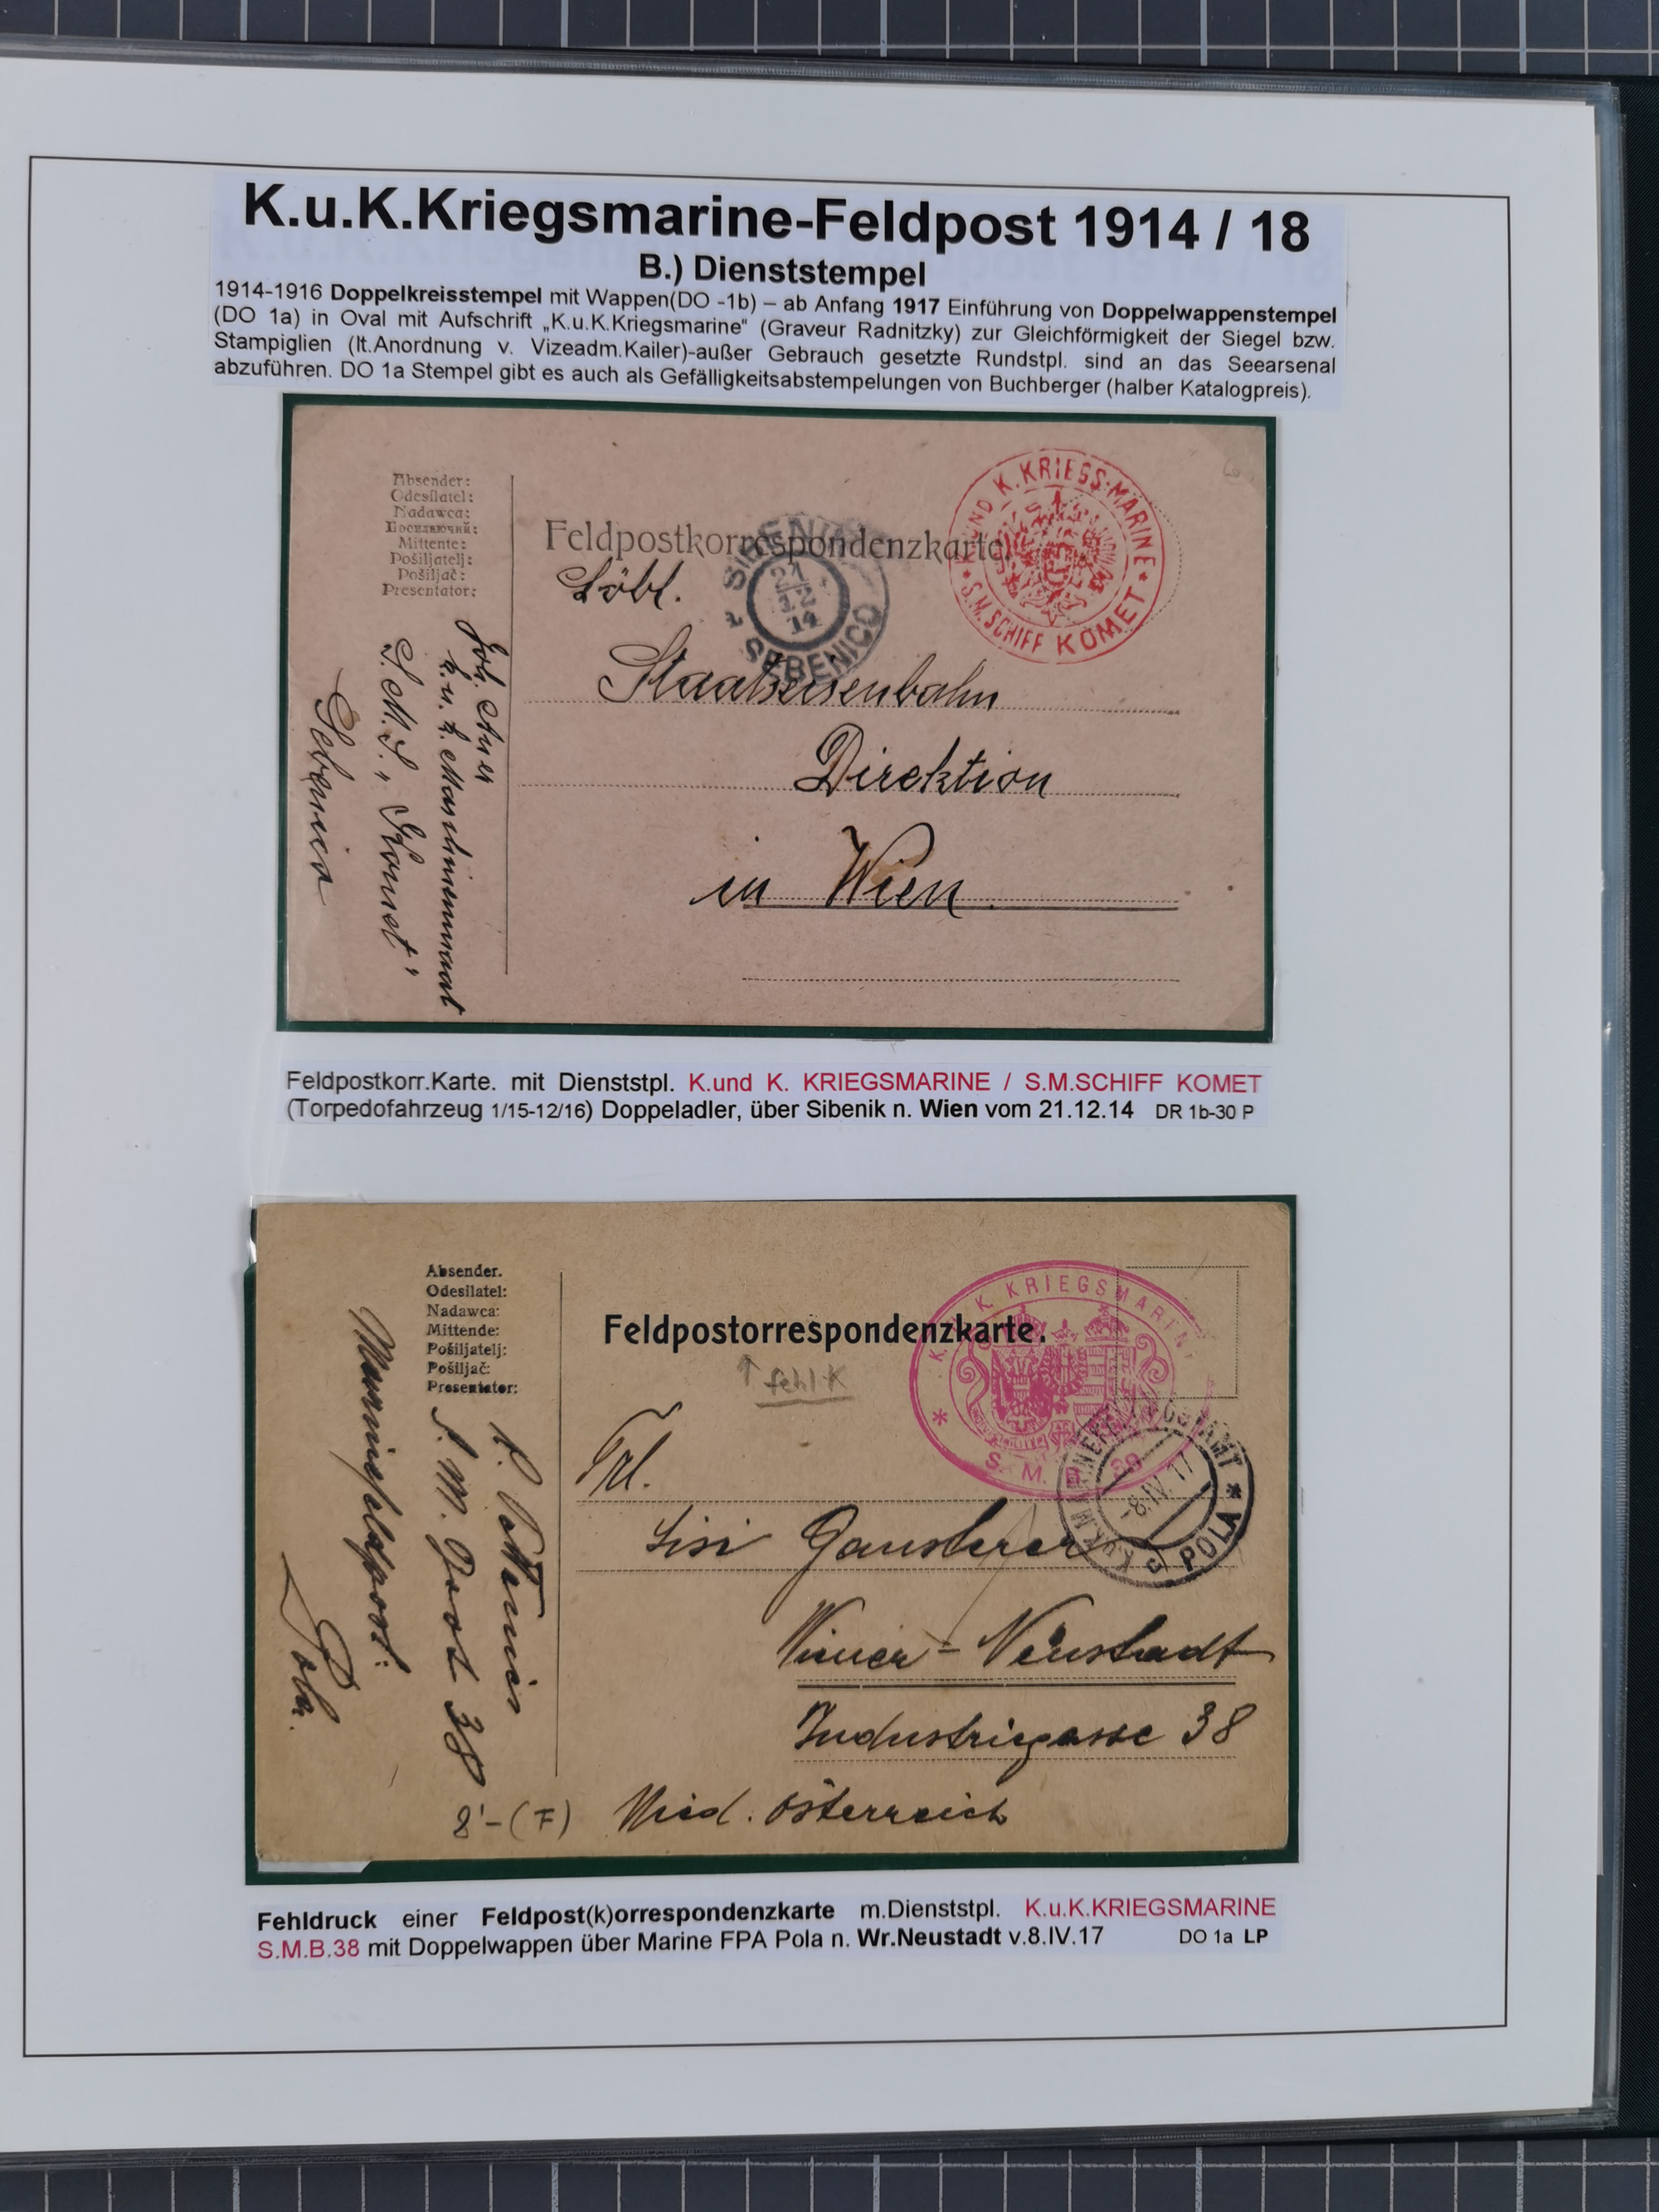 K.u.K.Kriegsmarine-Feldpost 1914 / 18
B.) Dienststempel
1914-1916 Doppelkreisstempel mit Wappen(DO -1b) – ab Anfang 1917 Einführung von Doppelwappenstempel
(DO 1a) in Oval mit Aufschrift „K.u.K.Kriegsmarine" (Graveur Radnitzky) zur Gleichförmigkeit der Siegel bzw.
Stampiglien (lt.Anordnung v. Vizeadm.Kailer)-außer Gebrauch gesetzte Rundstpl. sind an das Seearsenal
abzuführen. DO 1a Stempel gibt es auch als Gefälligkeitsabstempelungen von Buchberger (halber Katalogpreis).
Absender:
Odesílatel:
Nadawca:
Посилаючий:
Mittente:
Pošiljatelj:
Pošiljač:
Presentator:
Joh. Auer
k. u. k. Maschinenmaat
S. M. S. „Komet"
Sebenico
Feldpostkorrespondenzkarte
K. UND K. KRIEGS-MARINE
* S.M. SCHIFF KOMET *
ŠIBENIK
21
12
14
SEBENICO
Löbl.
Staatseisenbahn
Direktion
in Wien
Feldpostkorr.Karte. mit Dienststpl. K.und K. KRIEGSMARINE / S.M.SCHIFF KOMET
(Torpedofahrzeug 1/15-12/16) Doppeladler, über Sibenik n. Wien vom 21.12.14 DR 1b-30 P
Absender.
Odesilatel:
Nadawca:
Mittende:
Pošiljatelj:
Pošiljač:
Presentator:
S. M. Boot 38
Marinefeldpost:
Pola.
Feldpostorrespondenzkarte.
↑ fehl K
K. U. K. KRIEGSMARINE
* S. M. B. 38
K.u.K. MARINEFELDPOSTAMT *
-8.IV.17
c POLA
Frl.
Lisi Gansterer
Wiener-Neustadt
Industriegasse 38
Nied. Österreich
8'-(F)
Fehldruck einer Feldpost(k)orrespondenzkarte m.Dienststpl. K.u.K.KRIEGSMARINE
S.M.B.38 mit Doppelwappen über Marine FPA Pola n. Wr.Neustadt v.8.IV.17 DO 1a LP